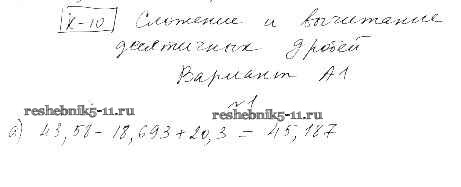 К-10 Сложение и вычитание
десятичных дробей
Вариант А1
№1
reshebnik5-11.ru reshebnik5-11.ru
а) 43,58 - 18,693 + 20,3 = 45,187